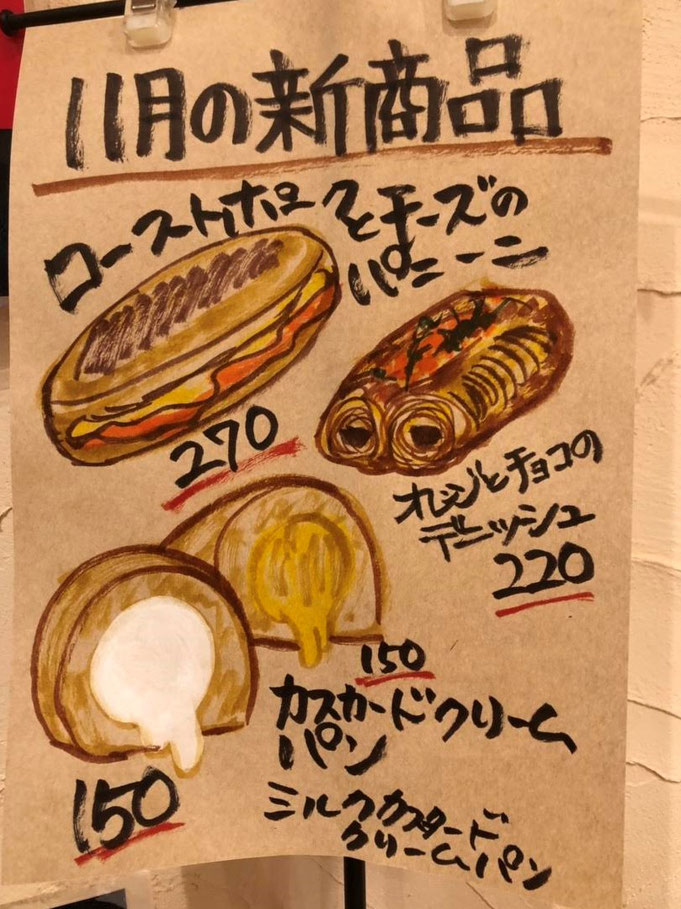 11月の新商品
ローストポークとチーズの
パニーニ
270
オレンジとチョコの
デニッシュ
220
150
カスカードクリーム
パン
150
ミルクカスタード
クリームパン